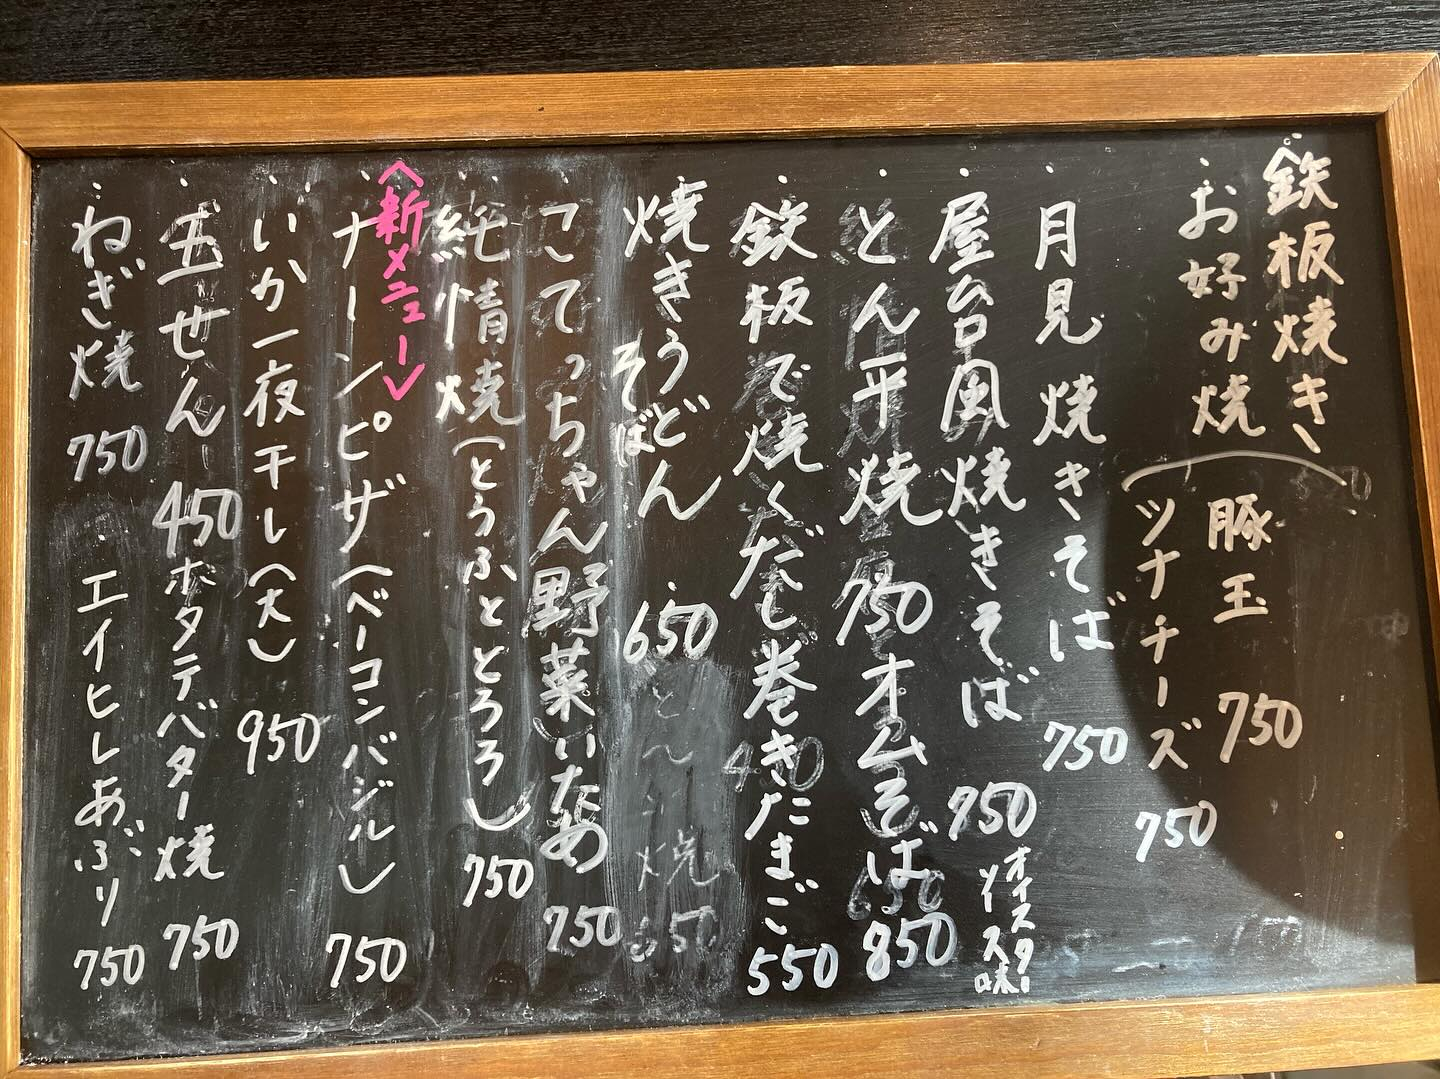 鉄板焼き
お好み焼 (豚玉 750
ツナチーズ 750
月見焼きそば 750
屋台風焼きそば 750 オイスターソース味
とん平焼 750 オムそば 850
鉄板で焼くだし巻きたまご 550
焼きうどん そば 650
こてっちゃん野菜いため 750
純情焼(とうふととろろ) 750
<新メニュー>
ナーンピザ(ベーコンバジル) 750
いか一夜干し(大) 950
玉せん 450 ホタテバター焼 750
ねぎ焼 750 エイヒレあぶり 750